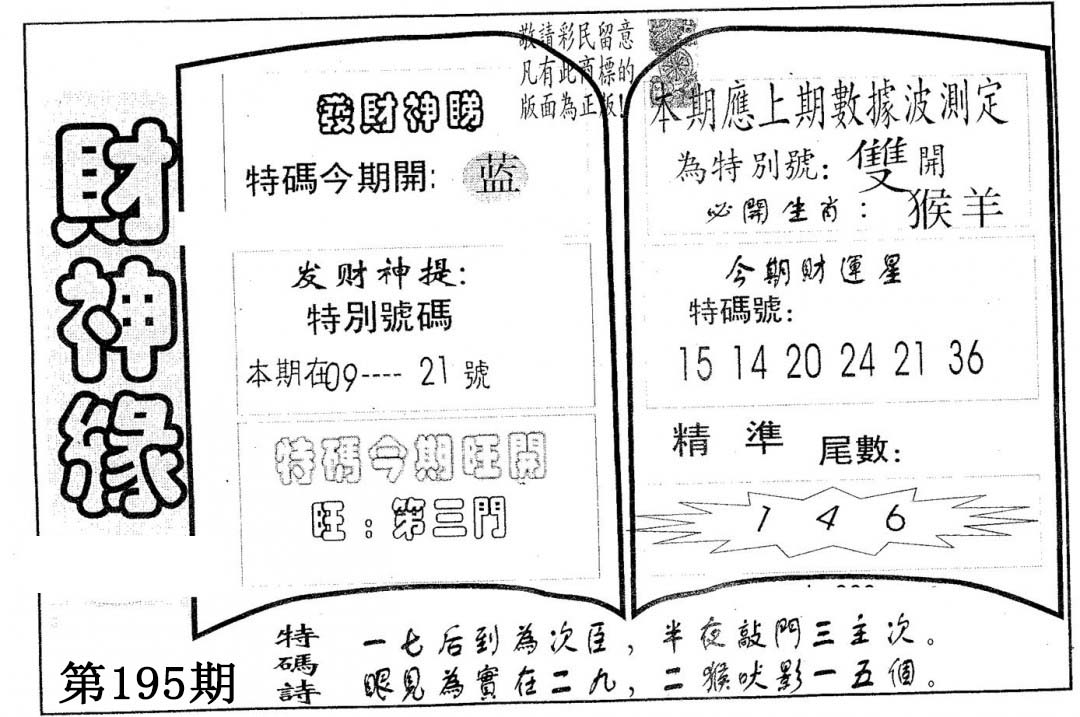 財神緣
敬請彩民留意
凡有此商標的
版面為正版!
發財神睇
特碼今期開: 蓝
发财神提:
特別號碼
本期在09---- 21 號
特碼今期旺開
旺:第三門
本期應上期數據波測定
為特別號: 雙開
必開生肖: 猴羊
今期財運星
特碼號:
15 14 20 24 21 36
精準 尾數:
1 4 6
特碼詩
一七后到為次臣,半夜敲門三主次。
眼見為實在二九,二猴吠影一五個。
第195期